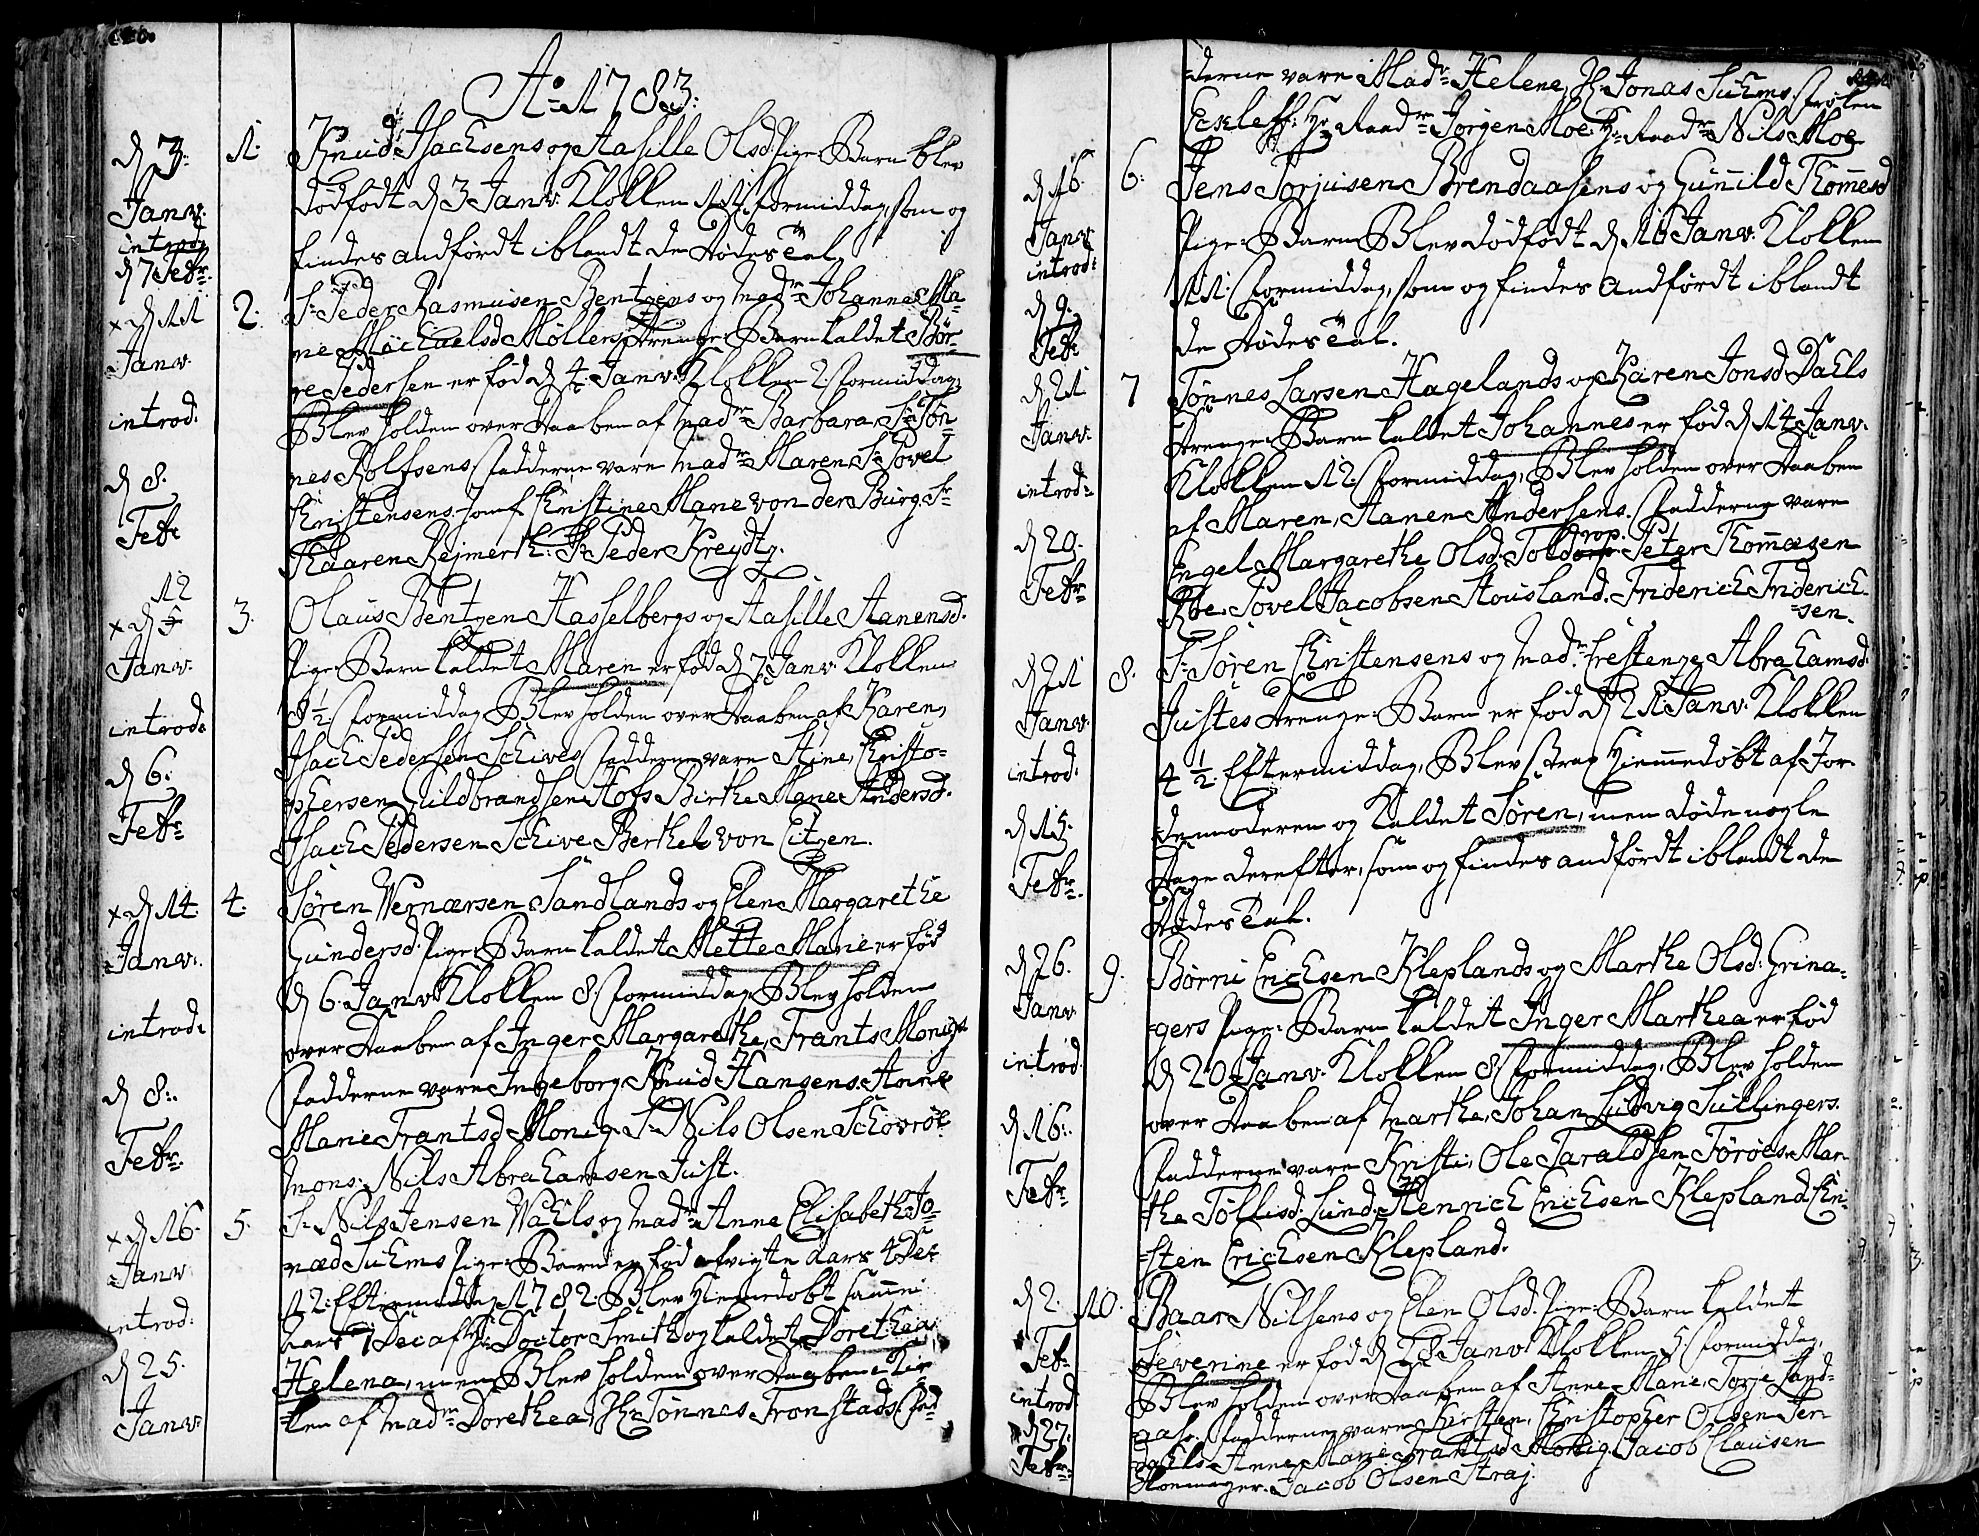 Ao 1783:
d 3: Janv. introd: d 7 Febr.
1. Knud Isachsens og Aasille Olsd: Pige-Barn blev
dödfödt d 3 Janv: Klokken 11 formiddag, som og
findes andfördt iblandt de Dödes Tal.
x d 11 Janv introd: d 8. Febr
2. Sr Peder Rasmusen Bentzens og Madme Johanne Ma-
rie Michaelsd Möllers Drenge-Barn kaldet Bör-
re Pedersen er föd d 4 Janv: Klokken 2 formiddag,
Blev holden over Daaben af Madme Barbara, Sr Tön-
nes Rolfsens, fadderne vare Madme Maren, Sr Povel
Christensens. Jomf Christine Marie von der Burg. Sr
Kaaren Rejmerth: Sr Peder Kreydtz.
x d 12 Janv. introd: d 6. Febr
3. Olaus Bentzen Hasselbergs og Aasille Aanensd.
Pige-Barn kaldet Maren er föd d 7 Janv. Klokken
9 1/2 formiddag Blev holden over Daaben af Karen,
Isach Pedersen Schives fadderne vare Stine, Christo-
phersen Gildbrandsen Hofs Birthe Marie Andersd.
Isach Pedersen Schive Berthel von Eitzen.
x d 14. Janv. introd: d 8. Febr.
4. Sören Wernersen Sandlands og Elen Margarethe
Gundersd. Pige-Barn kaldet Mette Marie er föd
d 6 Janv Klokken 8 formiddag, Blev holden
over Daaben af Inger Margarethe, Frants Monigs
fadderne vare Ingeborg, Knud Hansens. Anne
Marie Frantsd Monig. Sr Nils Olsen Schovröe
Mons: Nils Abrahamsen Just.
x d 16. Janv introd: d 25. Janv:
5. Sr Nils Jensen Wahls og Madme Anne Elisabeth Jo-
næd Suhms Pige-Barn er föd afvigte Aars 4 Dec
12 Eftermiddag 1782. Blev Hiemedöbt samme
Aars 7 Dec af Hr Doctor Smith og kaldet Dorethea
Helena, men Blev holden over Daaben i Kir-
ken af Madme Dorethea, Hr Tönnes Fronstads. Fad-
derne vare Madme Helene, Hr Jonas Suhms. frölen
Eckleff: Hr Raadm Jörgen Moe. Hr Raadm Nils Moe
d 16 Janv introd: d 9. Febr
6: Jens Torjusen Brendaasens og Gunnild Tommesd
Pige-Barn Blev dödfödt d 16 Janv: Klokken
11: formiddag, som og findes andfördt iblandt
de Dödes Tal.
d 21 Janv. introd: d 20. Febr
7 Tönnes Larsen Hagelands og Karen Jonsd. Dahls
Drenge-Barn kaldet Johannes er föd d 14 Janv.
Klokken 12 formiddag, Blev holden over Daaben
af Maren, Aanen Andersens. fadderne vare
Engel Margarethe Olsd: Toldorp. Peter Tommæsen
Røe. Povel Jacobsen Housland. Friderich Friderich-
sen.
d 21 Janv. introd. d 15. Febr.
8. Sr Sören Christensens og Madme Crestenze Abrahamsd
Justes Drenge-Barn er föd d 21 Janv. Klokken
4 1/2 Eftermiddag, Blev strax Hiemmedöbt af Jor-
demoderen og kaldet Sören, men döde nogle
Dage derefter, som og findes andfördt iblandt de
Dödes Tal.
d 26. Janv. introd. d 16. Febr
9. Börni Erichsen Kleplands og Marthe Olsd: Grina-
gers Pige-Barn kaldet Inger Marthea er föd
d 20 Janv. Klokken 8 formiddag, Blev holden
over Daaben af Marthe, Johan Ludvig Sullingers.
fadderne vare Kristi, Ole Taraldsen Töröes. Mar-
the Tollisd. Lund. Henrich Erichsen Klepland Chri-
sten Erichsen Klepland.
d 2. Febr introd d 27. Febr
10. Baar Nilsens og Elen Olsd. Pige-Barn kaldet
Severine er föd d 28 Janv Klokken 5 formiddag,
Blev holden over Daaben af Anne Marie, Torje Land-
aas. fadderne vare Kirsten, Christopher Olsen Ter-
dahls. Anne Marie Frantsd Monig. Jacob Clausen
Skoemager. Jacob Olsen Straj.